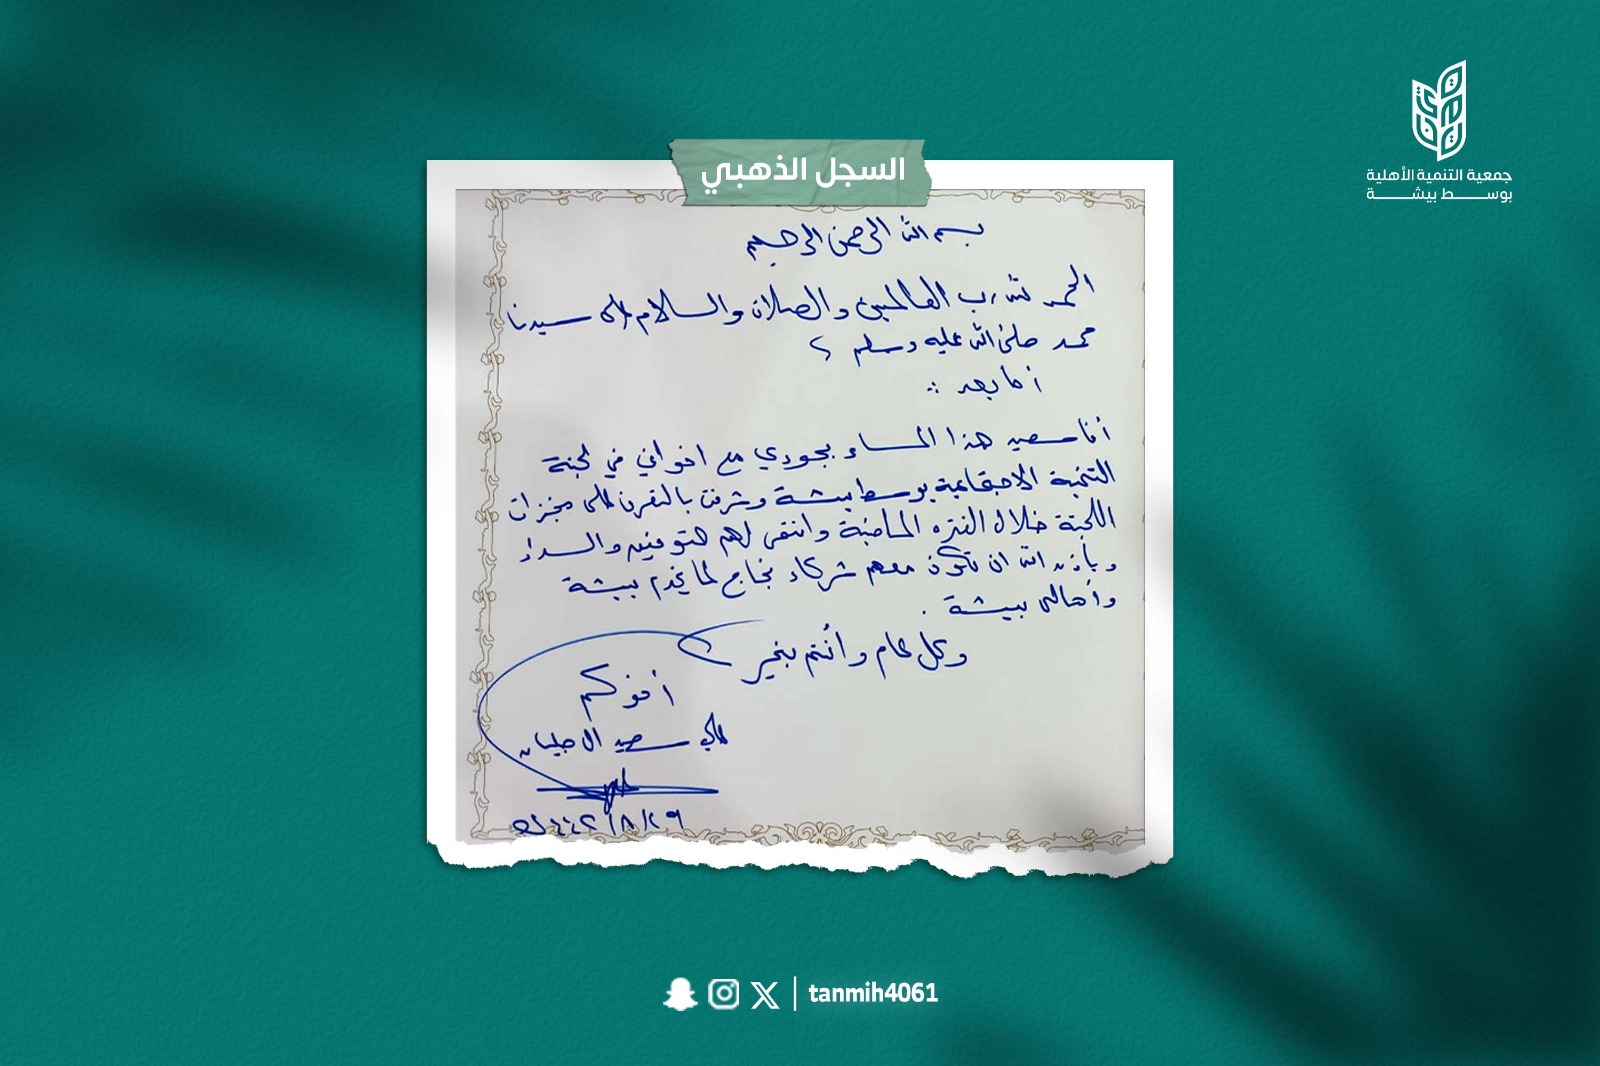 جمعية التنمية الأهلية
بوســـط بيشـــة
السجل الذهبي
بسم الله الرحمن الرحيم
الحمد لله رب العالمين والصلاة والسلام على سيدنا
محمد صلى الله عليه وسلم ؟
أما بعد ::
أنا سعيد هذا المساء بوجودي مع اخواني في لجنة
التنمية الاجتماعية بوسط بيشة وشرفت بالتعرف على منجزات
اللجنة خلال الفتره الماضية واتمنى لهم التوفيق والسداد
وبإذن الله ان نكون معهم شركاء نجاح لما يخدم بيشة
وأهالي بيشة .
وكل عام وأنتم بخير
أخوكم
علي سعيد ال
١٤٤٢/٨/٢٩هـ
tanmih4061